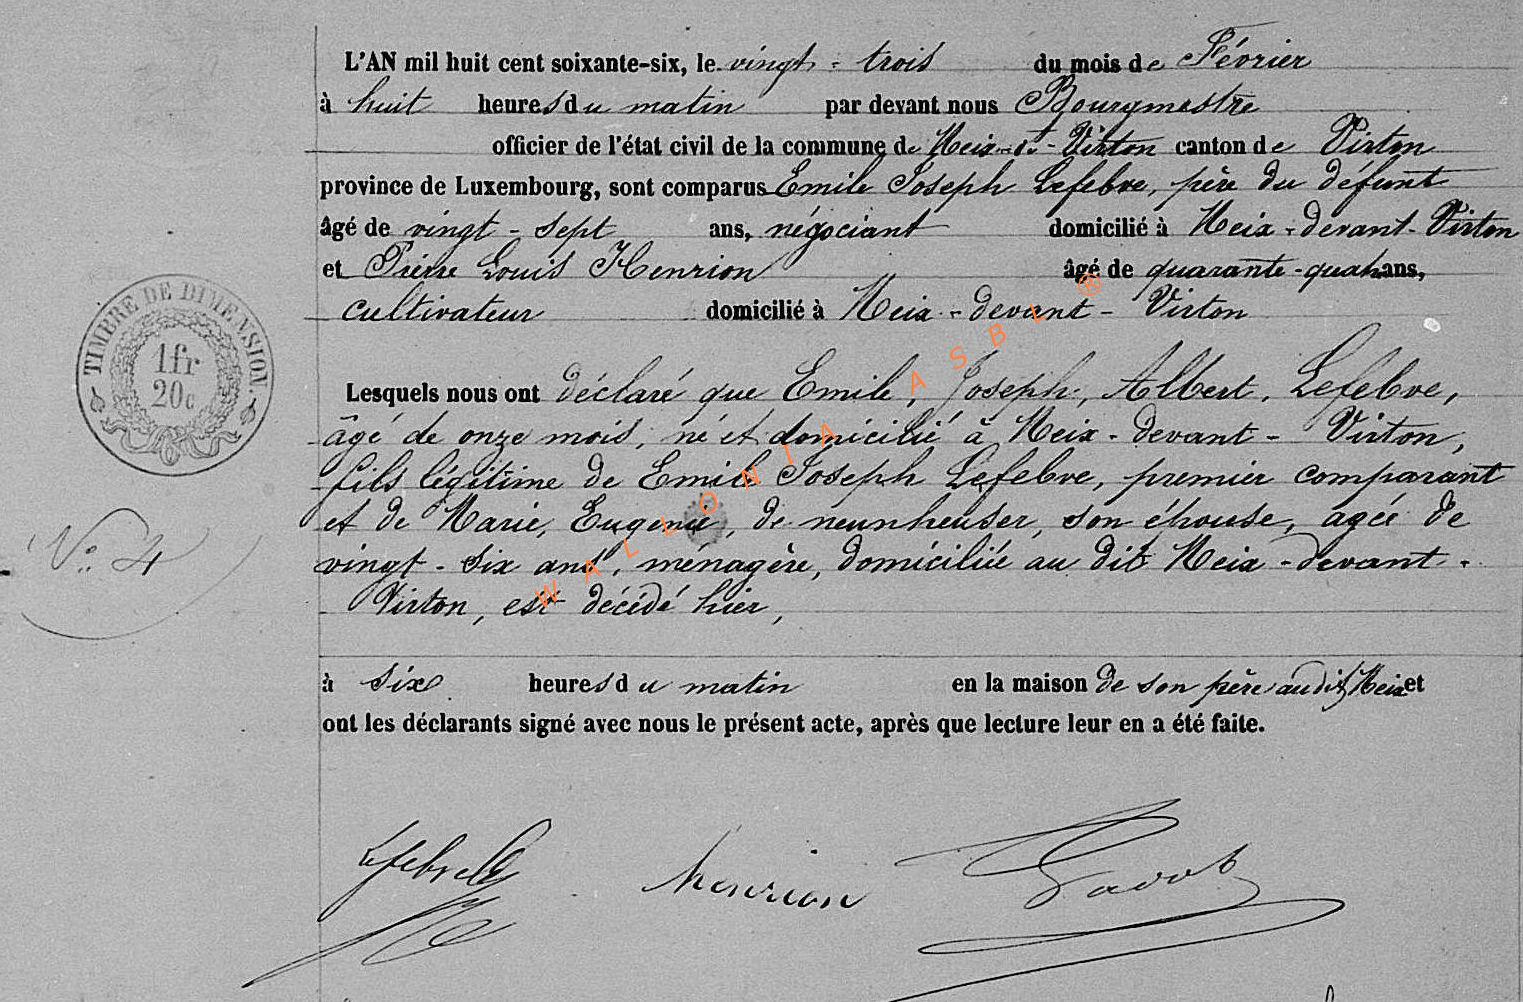 L'AN mil huit cent soixante-six, le vingt-trois du mois de Février
à huit heures du matin par devant nous Bourgmestre
officier de l'état civil de la commune de Meix-dt-Virton canton de Virton
province de Luxembourg, sont comparus Emile Joseph Lefebve, père du défunt
âgé de vingt-sept ans, négociant domicilié à Meix-devant-Virton
et Pierre Louis Henrion âgé de quarante-quatre ans,
cultivateur domicilié à Meix-devant-Virton
Lesquels nous ont déclaré que Emile, Joseph, Albert, Lefebve,
âgé de onze mois, né et domicilié à Meix-devant-Virton,
fils légitime de Emile Joseph Lefebve, premier comparant
et de Marie, Eugenie, de neunheuser, son épouse, agée de
vingt-six ans, ménagère, domiciliée au dit Meix-devant-
Virton, est décédé hier,
à six heures du matin en la maison de son père audit Meix et
ont les déclarants signé avec nous le présent acte, après que lecture leur en a été faite.
TIMBRE DE DIMENSION.
1fr
20c
N° 4
WALLONIA ASBL ®
Lefebve
henrion